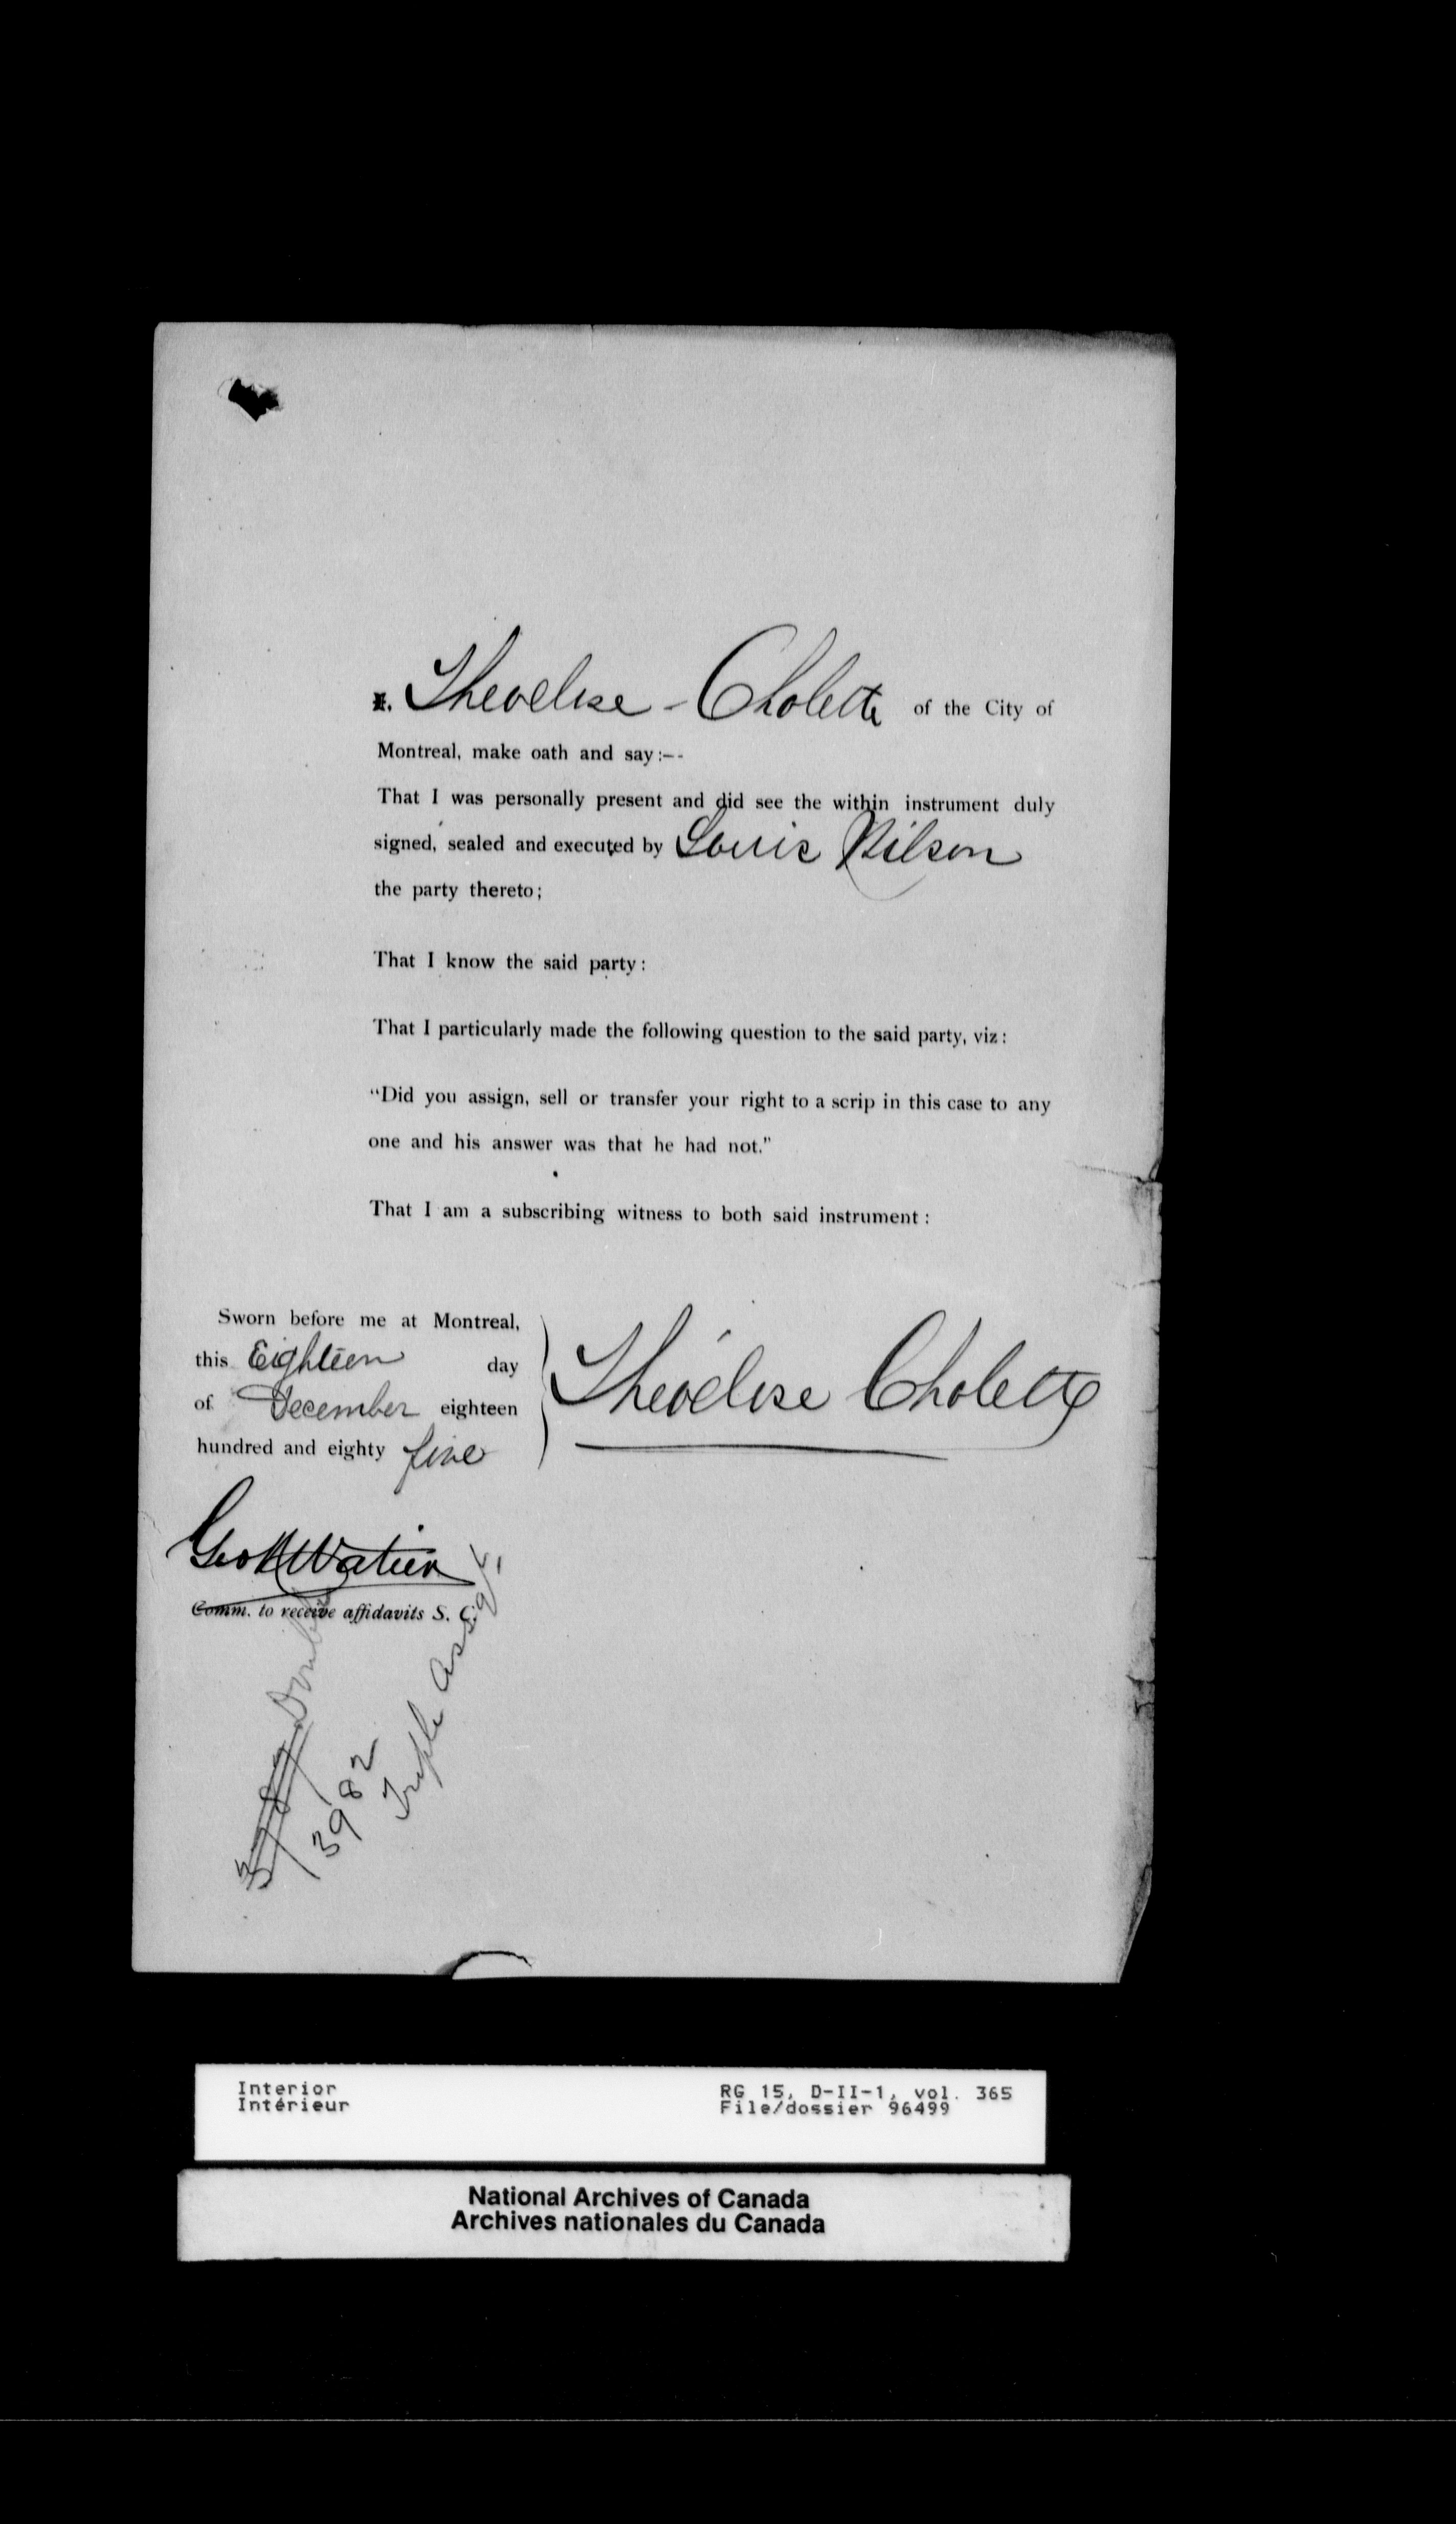 I, Theodise - Cholette of the City of
Montreal, make oath and say:--
That I was personally present and did see the within instrument duly
signed, sealed and executed by Louis Nilson
the party thereto;
That I know the said party:
That I particularly made the following question to the said party, viz:
“Did you assign, sell or transfer your right to a scrip in this case to any
one and his answer was that he had not.”
That I am a subscribing witness to both said instrument:
Sworn before me at Montreal,
this Eighteen day
of December eighteen
hundred and eighty five
Théodise Cholette
Comm. to receive affidavits S. C.
Double
3982
Triple Assigt.
Interior
Intérieur
RG 15, D-II-1, vol. 365
File/dossier 96499
National Archives of Canada
Archives nationales du Canada